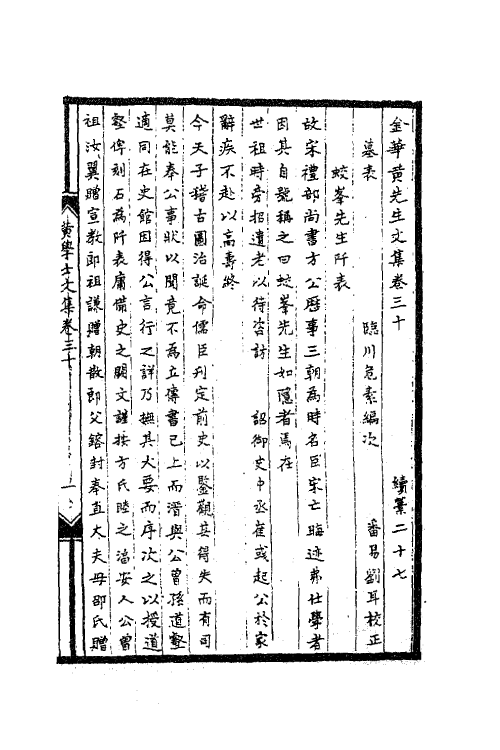 金華黃先生文集卷三十　續槀二十七
臨川危素編次　番易劉耳校正
墓表
蛟峯先生阡表
故宋禮部尚書方公歷事三朝為時名臣宋亡晦迹弗仕學者
因其自號稱之曰蛟峯先生如隱者焉在
世祖時旁招遺老以待咨訪　詔御史中丞崔彧起公於家
辭疾不赴以高壽終
今天子稽古圖治誕命儒臣刊定前史以鑒觀其得失而有司
莫能奉公事狀以聞竟不為立傳書已上而溍與公曾孫道壑
適同在史館因得公言行之詳乃摭其大要而序次之以授道
壑俾刻石為阡表庸備史之闕文謹按方氏睦之淳安人公曾
祖汝翼贈宣教郎祖謙贈朝散郎父鎔封奉直大夫母邵氏贈
黃學士文集卷三十　一